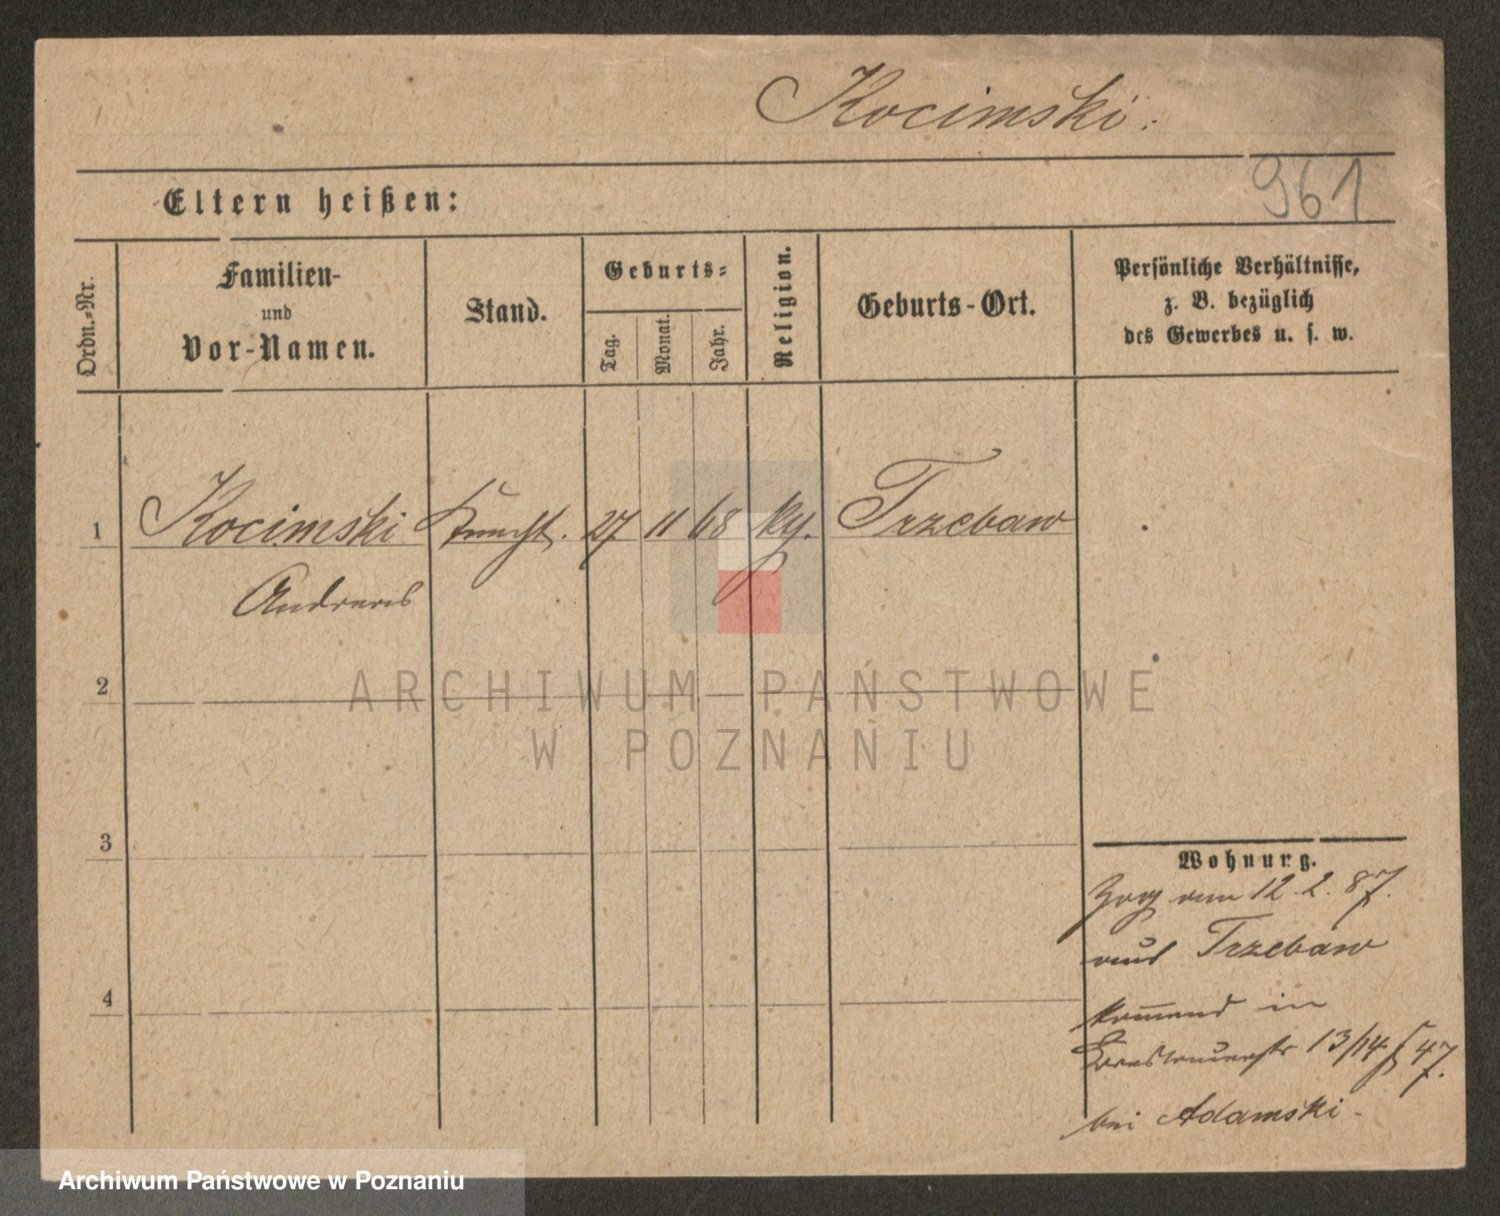 Kocimski.
961
Eltern heißen:
Ordn.-Nr.
Familien-
und
Vor-Namen.
Stand.
Geburts-
Tag.
Monat.
Jahr.
Religion.
Geburts-Ort.
Persönliche Verhältnisse,
z. B. bezüglich
des Gewerbes u. s. w.
1 Kocimski Knecht. 27 11 68 kg. Trzebaw
Andreas
2
ARCHIWUM PAŃSTWOWE
W POZNANIU
3
4
Wohnung.
Zog am 12. 2. 87.
aus Trzebaw
kommend in
13/14 47.
bei Adamski.
Archiwum Państwowe w Poznaniu